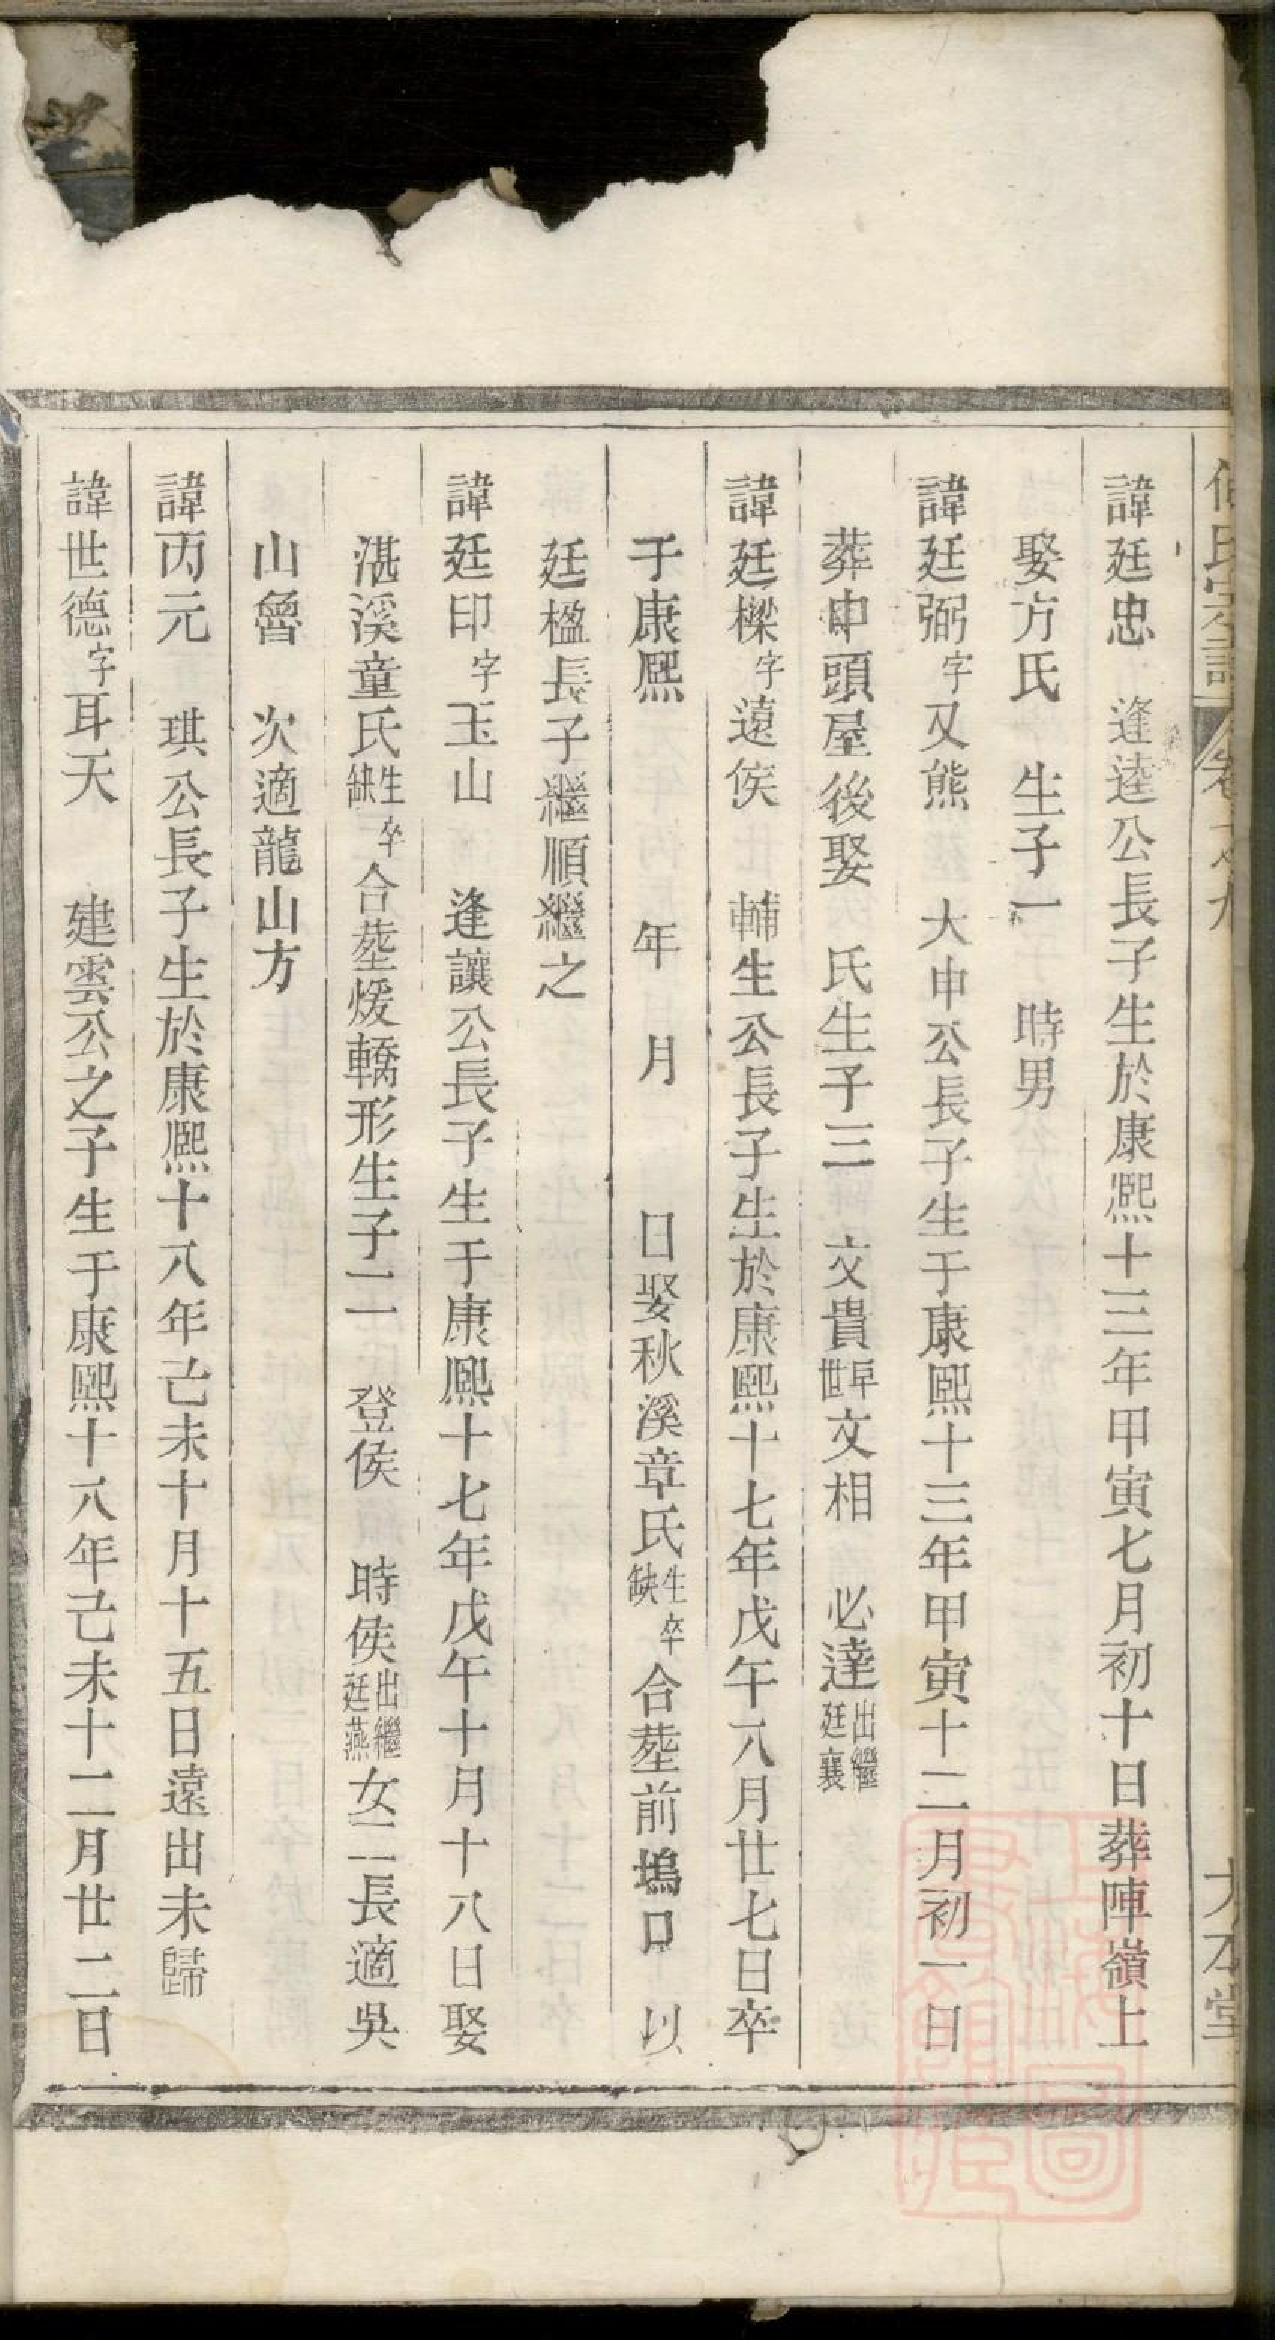 氏宗譜 卷之九 大本堂
諱廷忠 逢逵公長子生於康熙十三年甲寅七月初十日葬陣嶺上
娶方氏 生子一 時男
諱廷弼字又熊 大申公長子生于康熙十三年甲寅十二月初一日
葬申頭屋後娶 氏生子三 文貴早世文相 必達出繼廷襄
諱廷樑字遠侯 輔生公長子生於康熙十七年戊午八月廿七日卒
于康熙 年 月 日娶秋溪章氏生卒缺合塟前塢口 以
廷楹長子繼順繼之
諱廷印字玉山 逢讓公長子生于康熙十七年戊午十月十八日娶
湛溪童氏生卒缺合塟煖轎形生子二 登侯 時侯出繼廷燕女二長適吳
山魯 次適龍山方
諱丙元 琪公長子生於康熙十八年己未十月十五日遠出未歸
諱世德字耳天 建雲公之子生于康熙十八年己未十二月廿二日